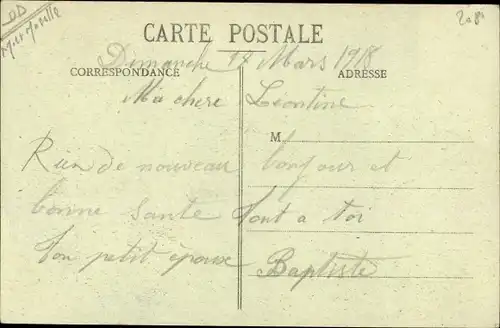 CARTE POSTALE
Dimanche 17 Mars 1918
CORRESPONDANCE
ADRESSE
Ma chere Léontine
M
Rien de nouveau bonjour et
bonne sante tout a toi
ton petit époux Baptiste